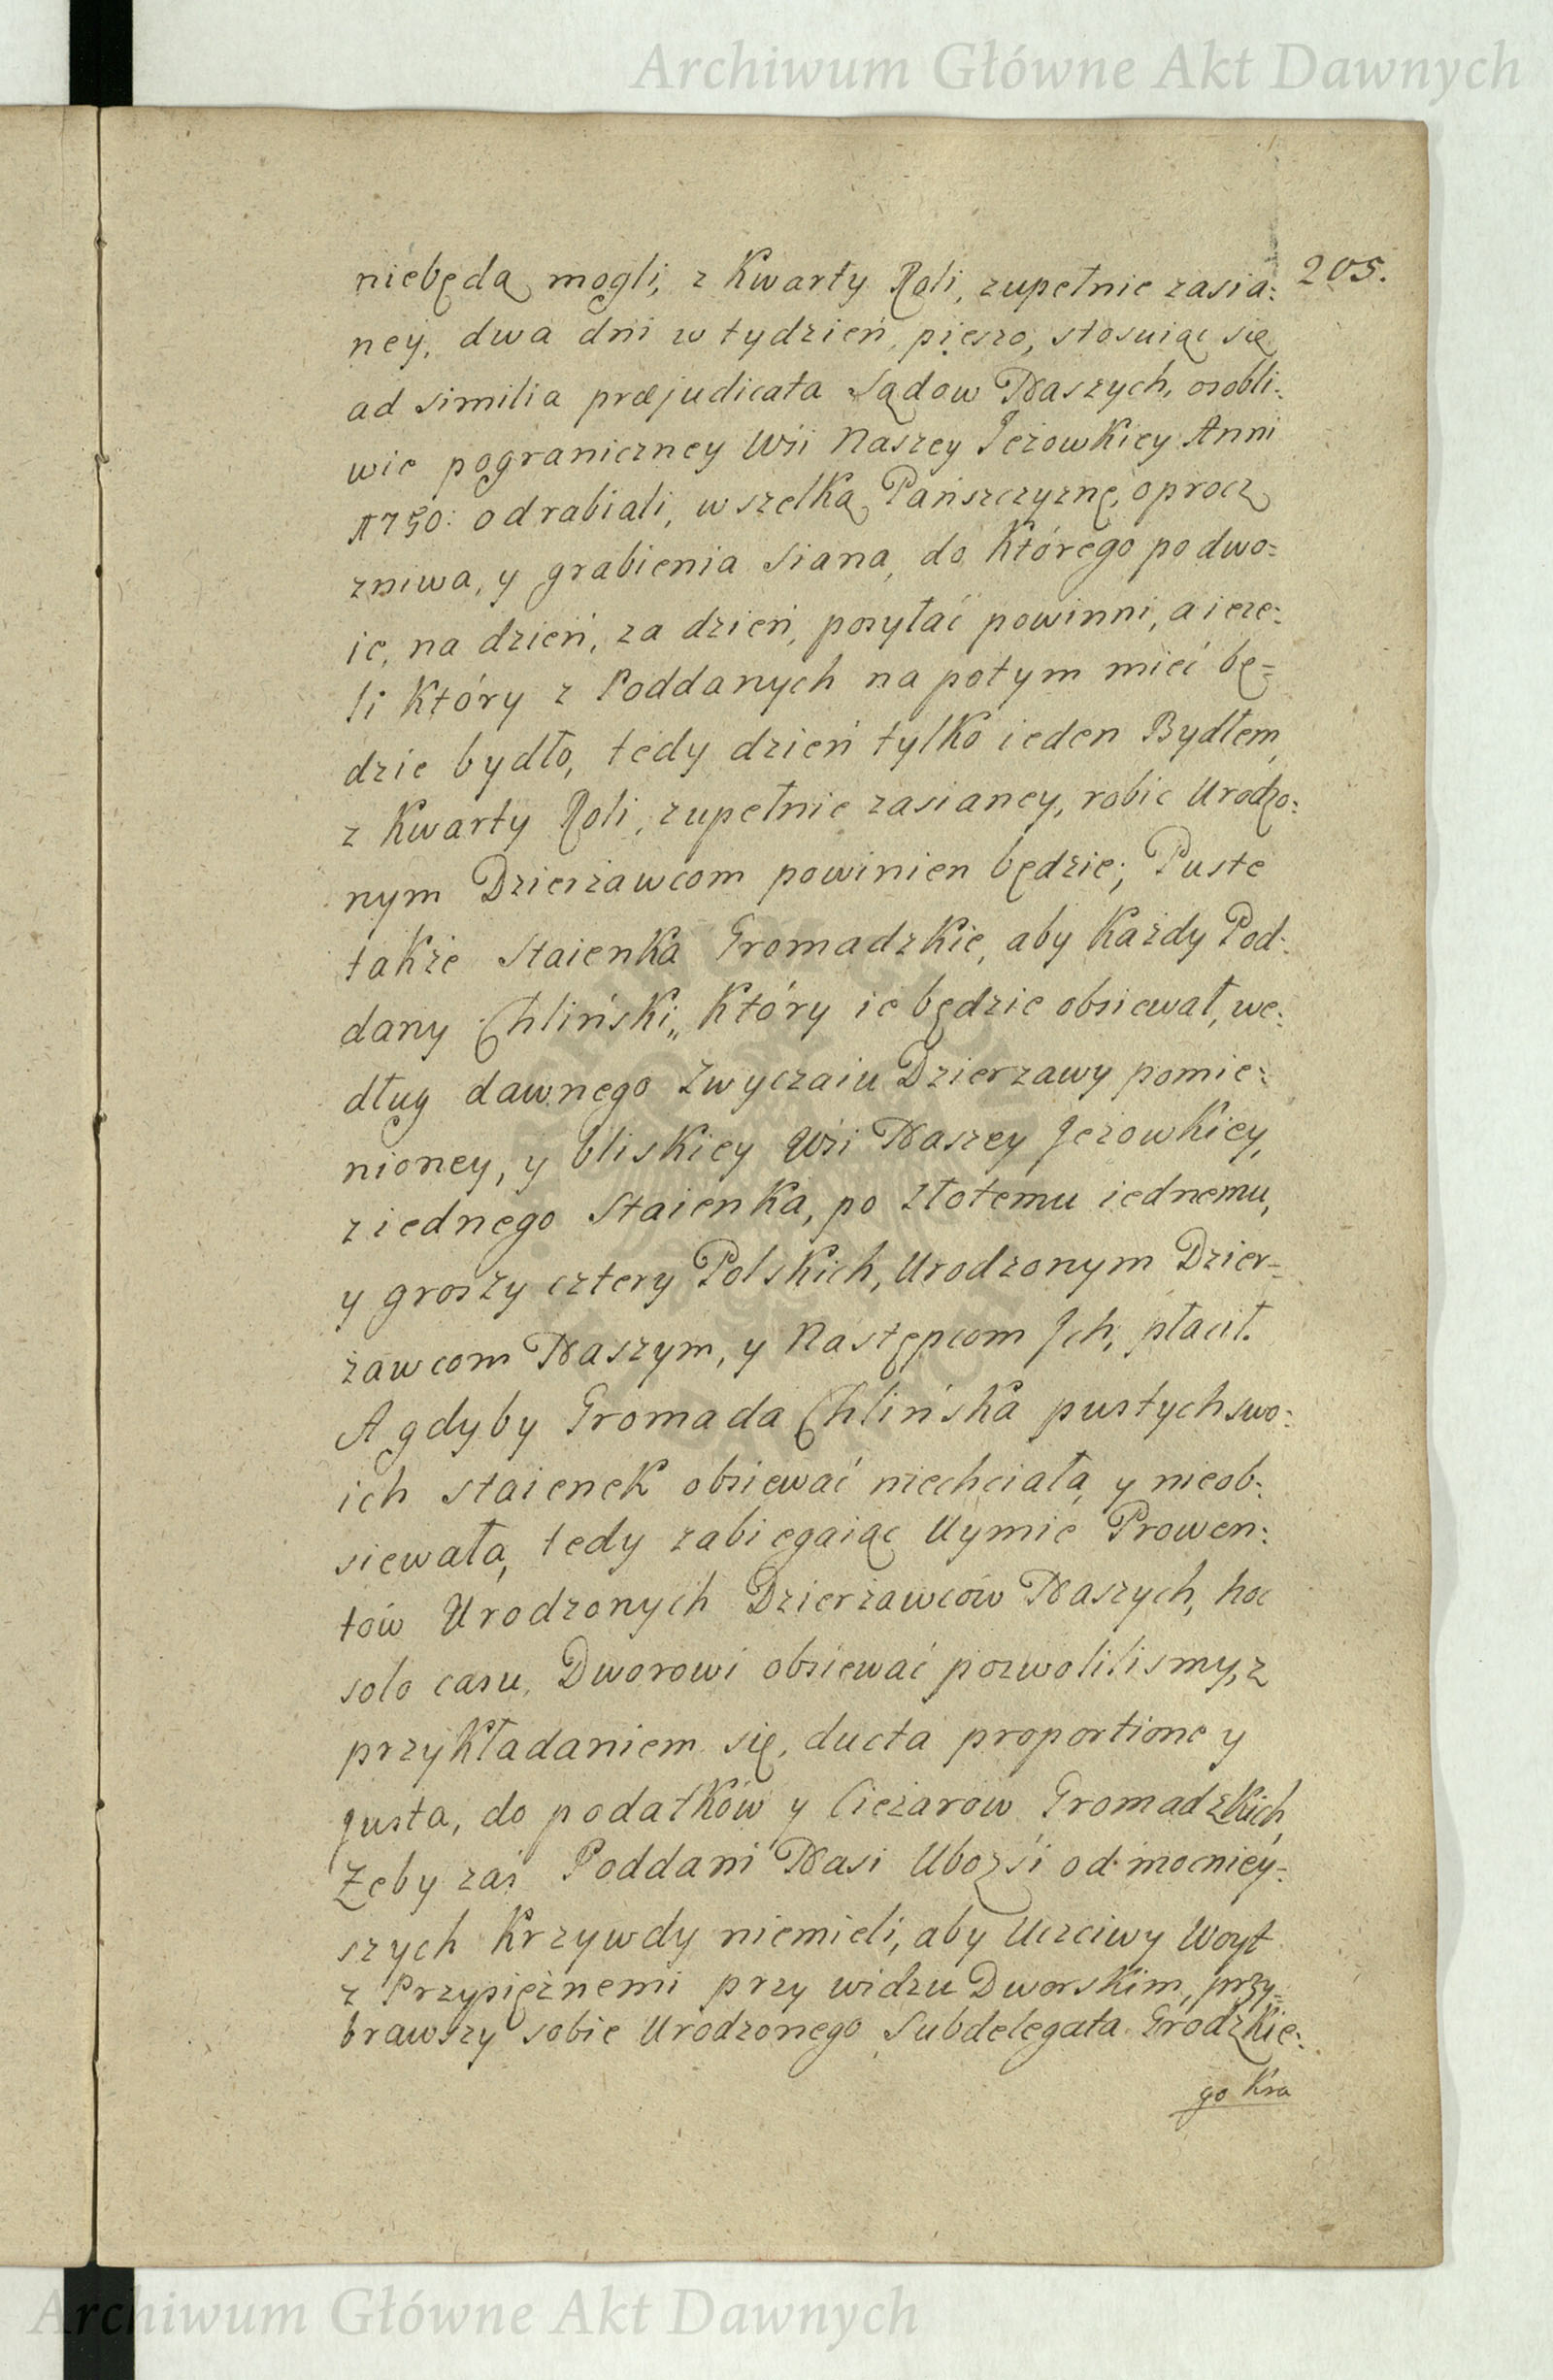 Archiwum Główne Akt Dawnych
205.
niebędą mogli, z Kwarty Roli, zupełnie zasia:
ney, dwa dni w tydzień, pieszo, stosuiąc się
ad similia præjudicata Sądow Naszych, osobli:
wie pograniczney Wsi Naszey Jeżowkiey Anni
1750: odrabiali, wszelką Pańszczyznę, oprocz
zniwa, y grabienia Siana, do Którego podwo=
ie, na dzień, za dzień, posyłać powinni, a ieże:
li Który z Poddanych na potym mieć bę=
dzie bydło, tedy dzień tylko ieden Bydłem,
z Kwarty Roli, zupełnie zasianey, robić Urodzo:
nym Dzierżawcom powinien będzie; Puste
takze Staienka Gromadzkie, aby Każdy Pod:
dany Chliński, Który ie będzie obsiewał, we:
dług dawnego Zwyczaiu Dzierzawy pomie:
nioney, y bliskiey Wsi Naszey Jeżowkiey,
z iednego Staienka, po Złotemu iednemu,
y groszy cztery Polskich, Urodzonym Dzier=
żawcom Naszym, y Następcom Ich, płacił.
A gdyby Gromada Chlińska pustych swo:
ich staienek obsiewać niechciała, y nieob:
siewała, tedy zabiegaiąc Uymie Prowen:
tów Urodzonych Dzierżawców Naszych, hoc
solo casu, Dworowi obsiewać pozwolilismy, z
przykładaniem się, ducta proportione y
justa, do podatków y Cięzarow Gromadzkich,
Żeby zaś Poddani Nasi Ubozsi od mocniey=
szych Krzywdy niemieli, aby Uczciwy Woyt
z Przysiężnemi przy widzu Dworskim, przy=
brawszy sobie Urodzonego Subdelegata Grodzkie:
go Kra
Archiwum Główne Akt Dawnych